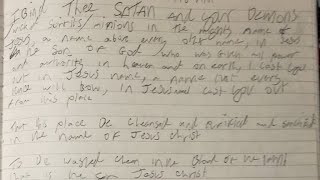 I BIND THEE SATAN and your Demons
your spirits/minions in the mighty name of
Jesus a name above every other name, in Jesus
the Son of God who was given all power
and authority in heaven and on earth, I cast you
out in Jesus name, a name that every
knee will bow, in Jesus and cast you out
from this place
let this place be cleansed and purified and sanctified
in the name of Jesus christ
To be washed clean in the blood of the lamb
that is the Jesus christ